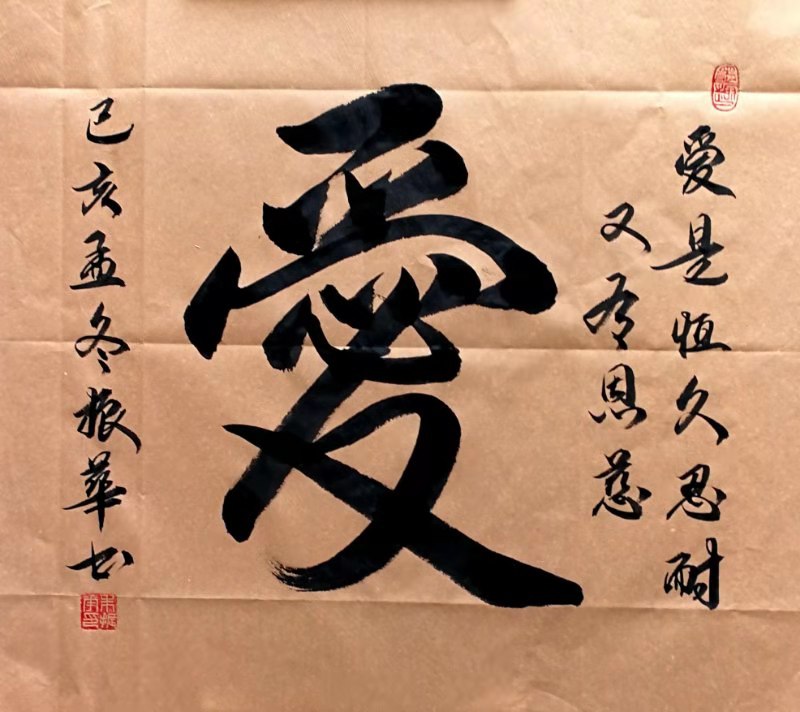 愛是恒久忍耐
又有恩慈
愛
己亥孟冬振華书